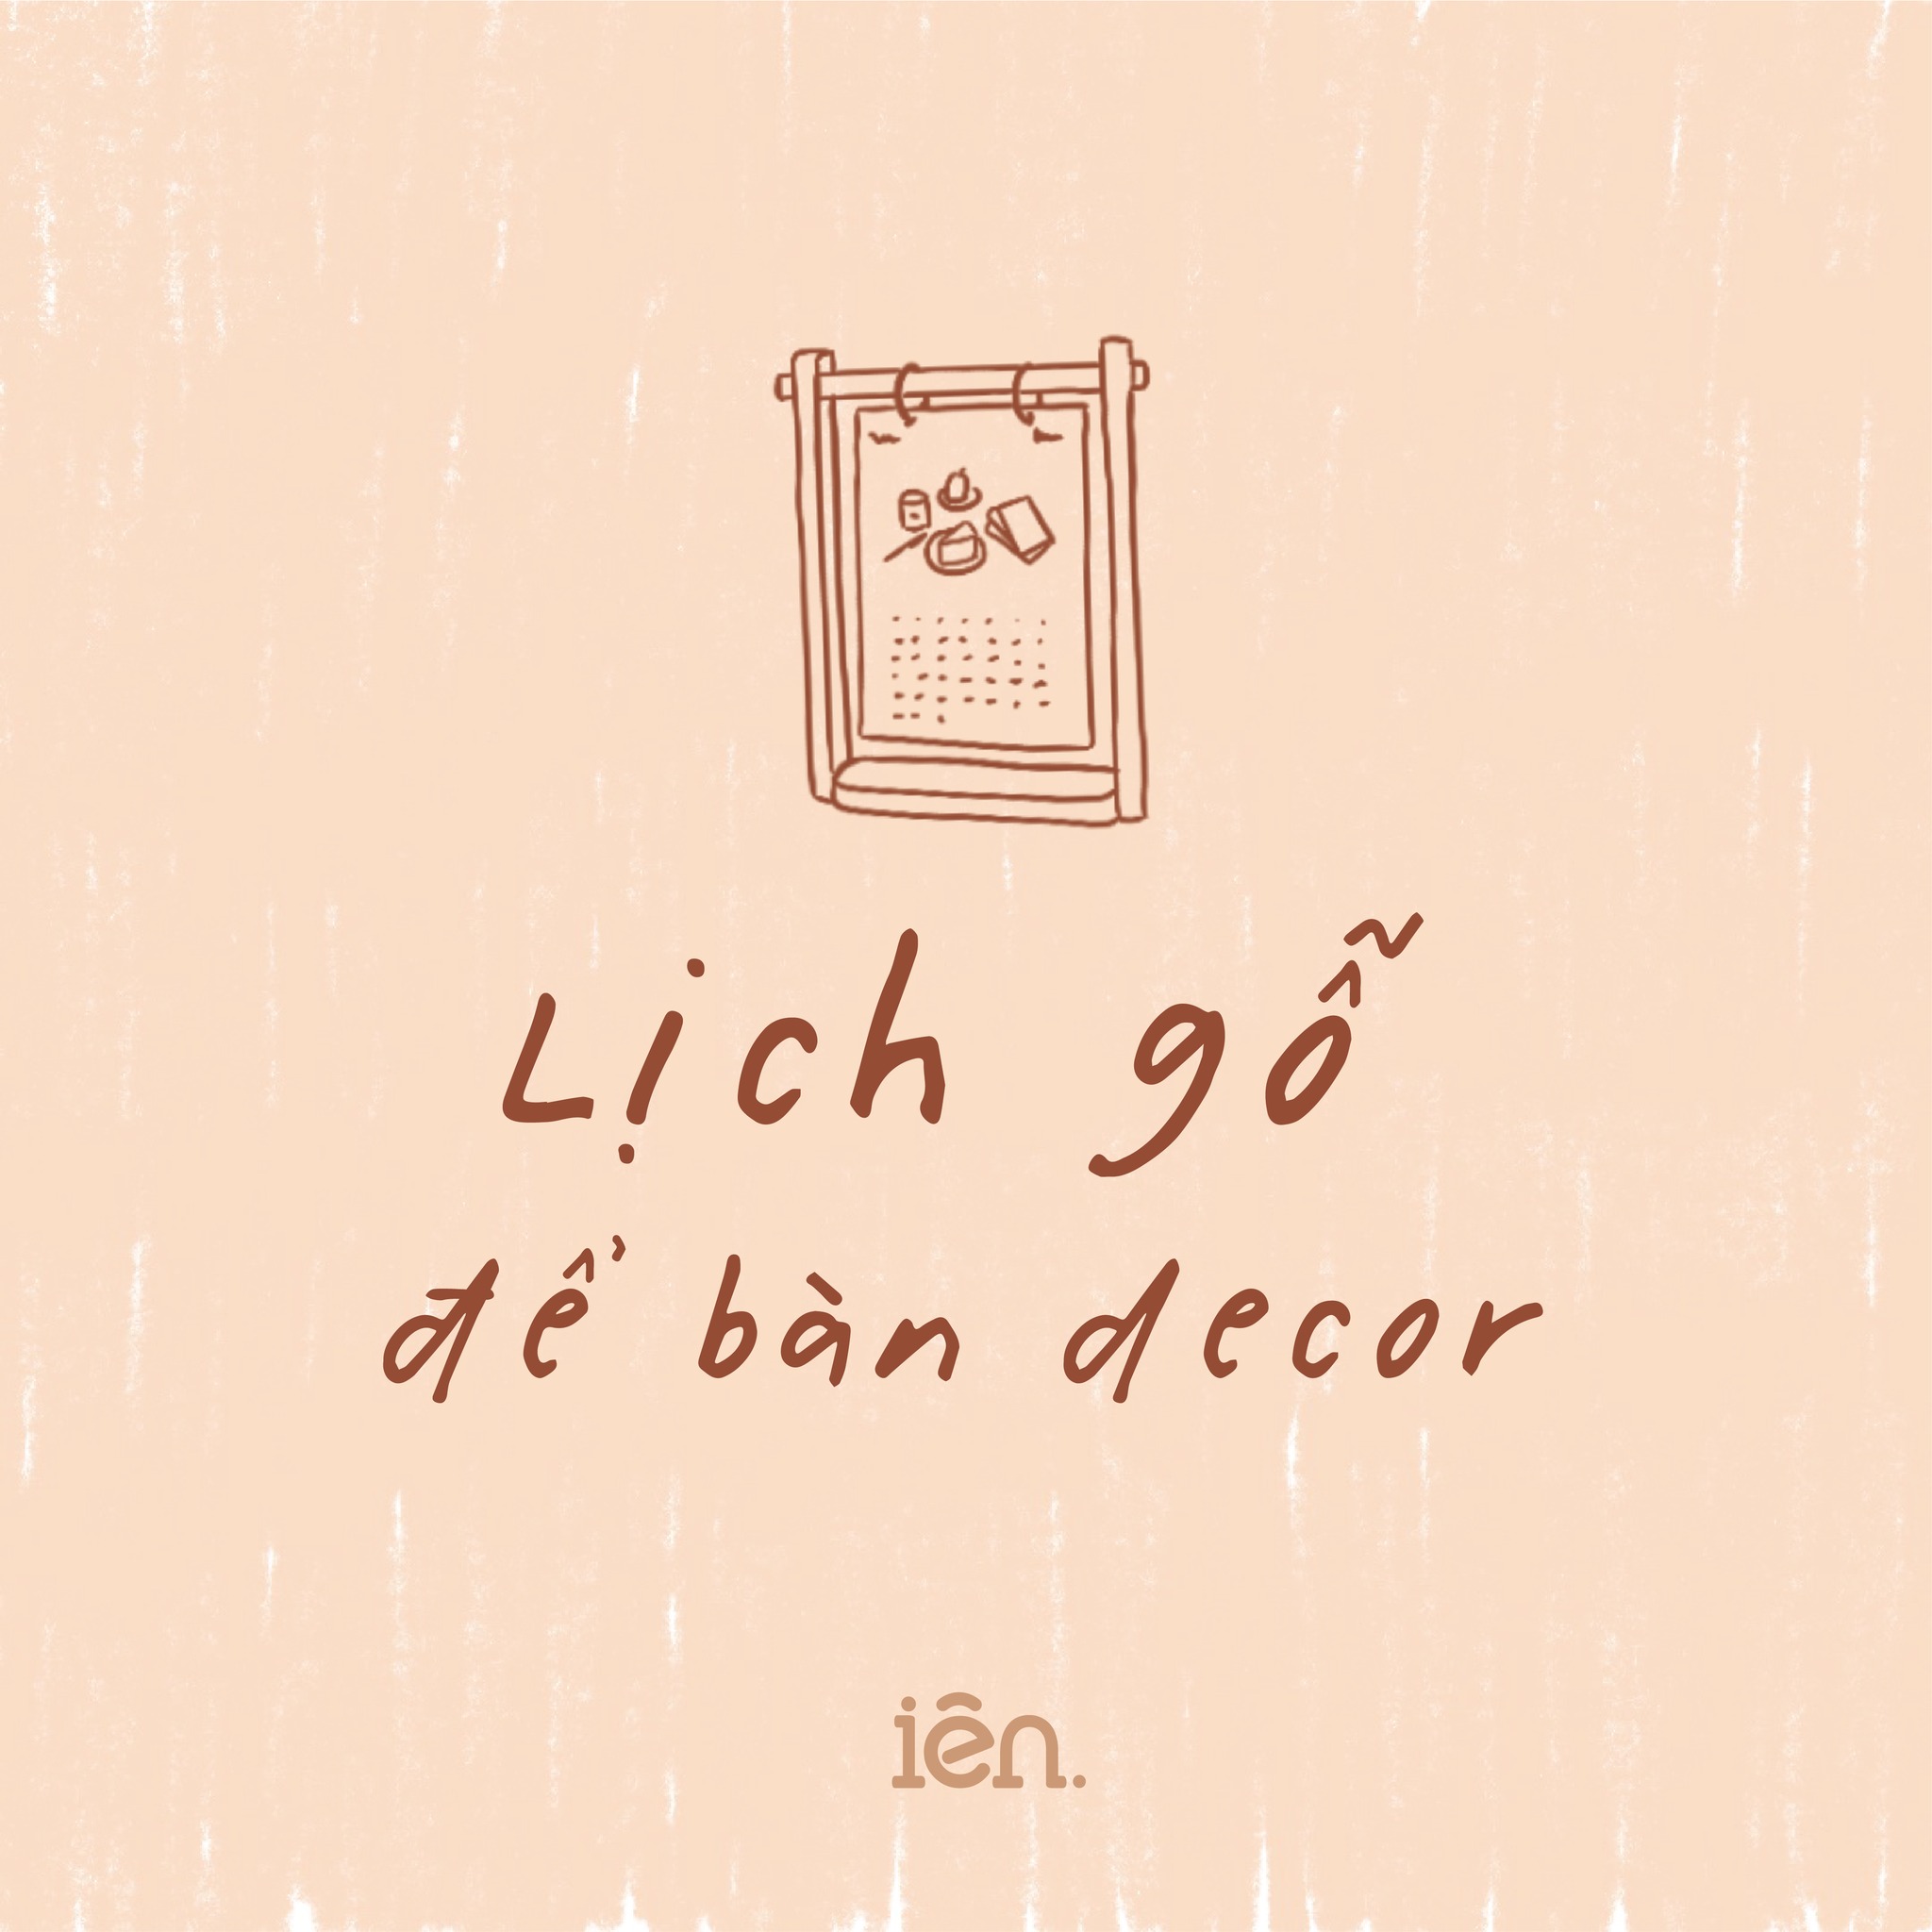 Lịch gỗ
để bàn decor
iên.